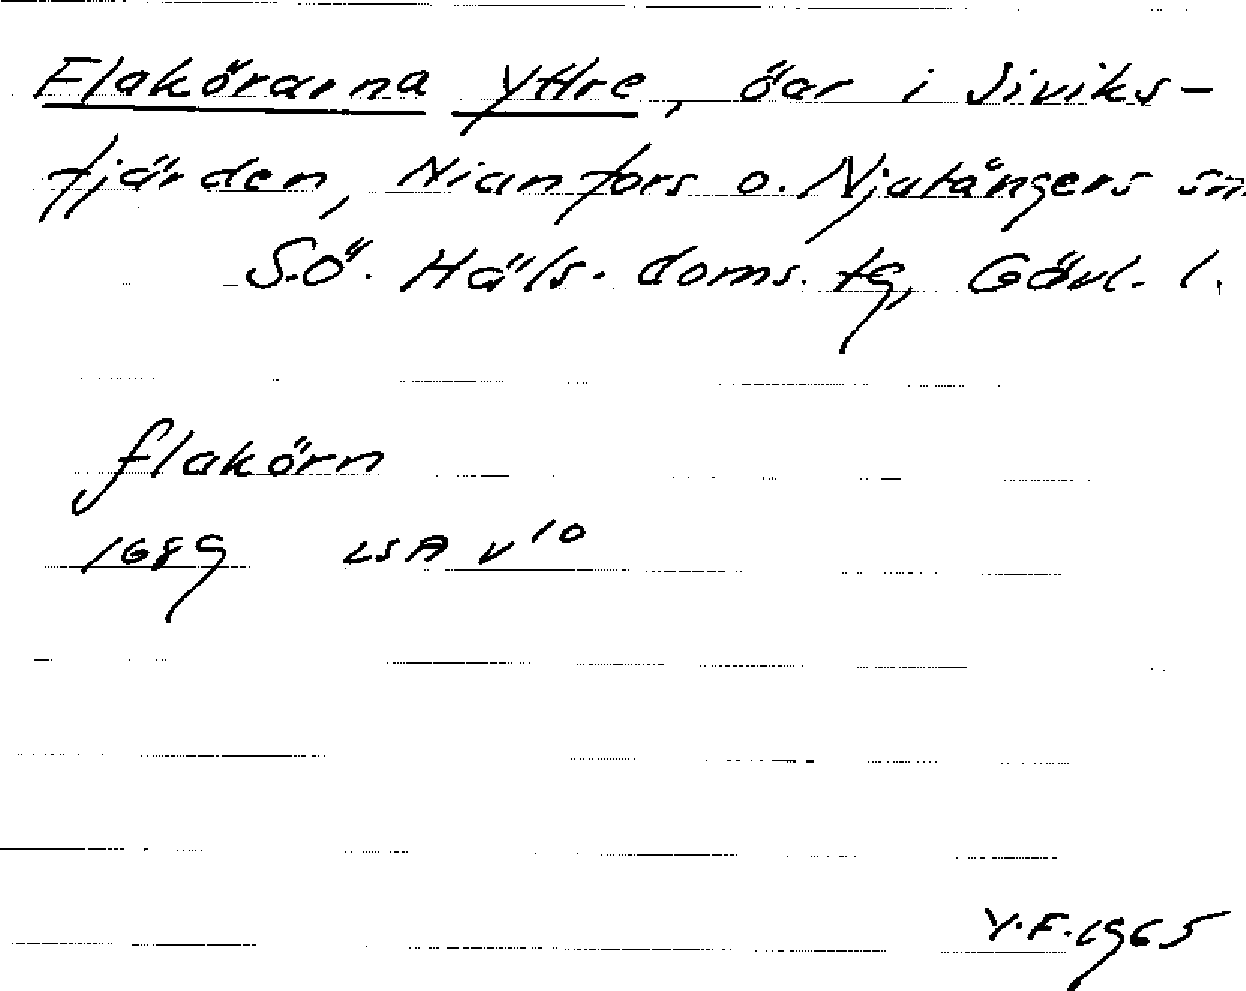 Flakörarna Yttre, öar i Siviks-
fjärden, Nianfors o. Njutångers sn
S.Ö. Häls. doms. tg, Gävl. l.
flakörn
1689 LSA v 10
Y.F. 1965